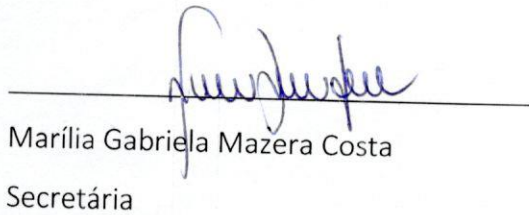 Marília Gabriela Mazera Costa
Secretária